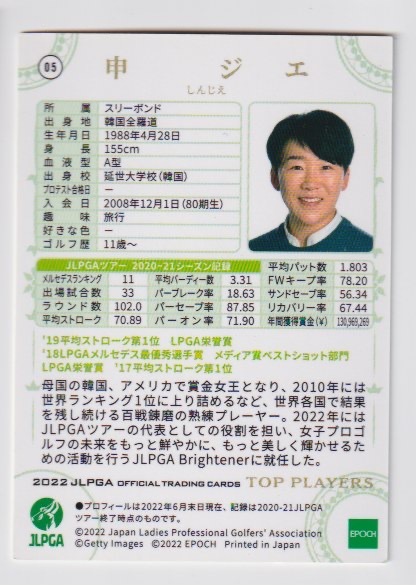 05
申 ジエ
しんじえ
所属 スリーボンド
出身地 韓国全羅道
生年月日 1988年4月28日
身長 155cm
血液型 A型
出身校 延世大学校(韓国)
プロテスト合格日 ー
入会日 2008年12月1日(80期生)
趣味 旅行
好きな色 ー
ゴルフ歴 11歳〜
JLPGAツアー 2020-21シーズン記録
平均パット数 1.803
メルセデスランキング 11 平均バーディー数 3.31 FWキープ率 78.20
出場試合数 33 パーブレーク率 18.63 サンドセーブ率 56.34
ラウンド数 102.0 パーセーブ率 89.87 リカバリー率 67.44
平均ストローク 70.89 パーオン率 71.90 年間獲得賞金(¥) 130,969,269
'19平均ストローク第1位 LPGA栄誉賞
'18LPGAメルセデス最優秀選手賞 メディア賞ベストショット部門
LPGA栄誉賞 '17平均ストローク第1位
母国の韓国、アメリカで賞金女王となり、2010年には
世界ランキング1位に上り詰めるなど、世界各国で結果
を残し続ける百戦錬磨の熟練プレーヤー。2022年には
JLPGAツアーの代表としての役割を担い、女子プロゴ
ルフの未来をもっと鮮やかに、もっと美しく輝かせる
ための活動を行うJLPGA Brightenerに就任した。
2022 JLPGA OFFICIAL TRADING CARDS TOP PLAYERS
●プロフィールは2022年6月末日現在、記録は2020-21JLPGA
ツアー終了時点のものです。
©2022 Japan Ladies Professional Golfers' Association
©Getty Images ©2022 EPOCH Printed in Japan
JLPGA
EPOCH